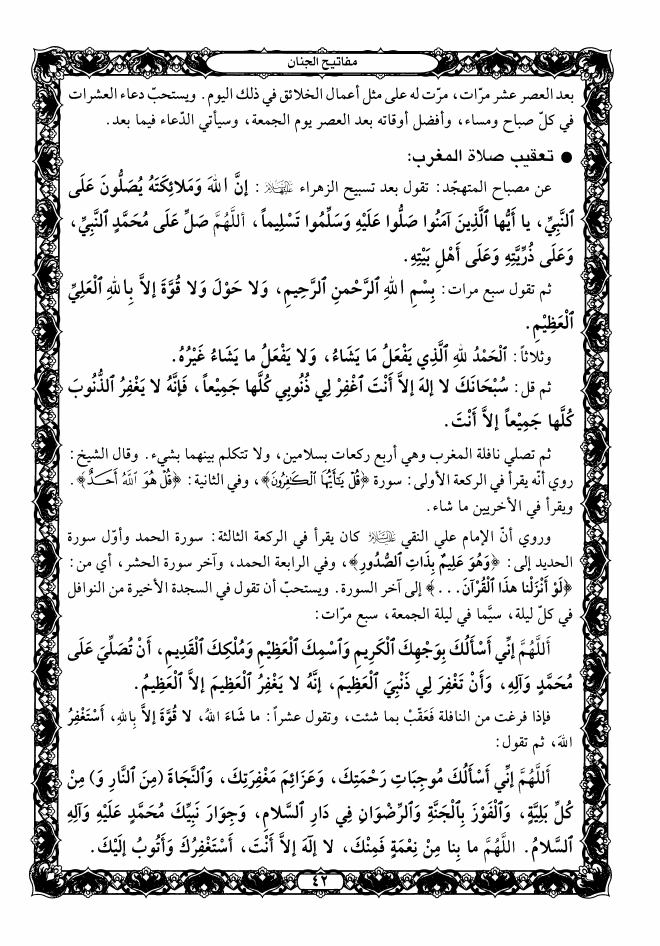 مفاتيح الجنان
بعد العصر عشر مرّات، مرّت له على مثل أعمال الخلائق في ذلك اليوم. ويستحبّ دعاء العشرات
في كلّ صباح ومساء، وأفضل أوقاته بعد العصر يوم الجمعة، وسيأتي الدّعاء فيما بعد.
● تعقيب صلاة المغرب:
عن مصباح المتهجّد: تقول بعد تسبيح الزهراء عليها السلام: إِنَّ اللهَ وَمَلائِكَتَهُ يُصَلُّونَ عَلَى
ٱلنَّبِيِّ، يا أَيُّها ٱلَّذِينَ آمَنُوا صَلُّوا عَلَيْهِ وَسَلِّمُوا تَسْلِيماً، أَللَّهُمَّ صَلِّ عَلَى مُحَمَّدٍ ٱلنَّبِيِّ،
وَعَلَى ذُرِّيَّتِهِ وَعَلَى أَهْلِ بَيْتِهِ.
ثم تقول سبع مرات: بِسْمِ اللهِ ٱلرَّحْمنِ ٱلرَّحِيمِ، وَلا حَوْلَ وَلا قُوَّةَ إِلاَّ بِاللهِ ٱلْعَلِيِّ
ٱلْعَظِيْمِ.
وثلاثاً: ٱلْحَمْدُ للهِ ٱلَّذِي يَفْعَلُ مَا يَشَاءُ، وَلا يَفْعَلُ ما يَشَاءُ غَيْرُهُ.
ثم قل: سُبْحَانَكَ لا إِلهَ إِلاَّ أَنْتَ ٱغْفِرْ لِي ذُنُوبِي كُلَّها جَمِيْعاً، فَإِنَّهُ لا يَغْفِرُ ٱلذُّنُوبَ
كُلَّها جَمِيْعاً إِلاَّ أَنْتَ.
ثم تصلي نافلة المغرب وهي أربع ركعات بسلامين، ولا تتكلم بينهما بشيء. وقال الشيخ:
روي أنّه يقرأ في الركعة الأولى: سورة ﴿قُلْ يَٰٓأَيُّهَا ٱلْكَٰفِرُونَ﴾، وفي الثانية: ﴿قُلْ هُوَ ٱللَّهُ أَحَدٌ﴾.
ويقرأ في الأخريين ما شاء.
وروي أنّ الإمام علي النقي عليه السلام كان يقرأ في الركعة الثالثة: سورة الحمد وأوّل سورة
الحديد إلى: ﴿وَهُوَ عَلِيمٌ بِذَاتِ ٱلصُّدُورِ﴾، وفي الرابعة الحمد، وآخر سورة الحشر، أي من:
﴿لَوْ أَنْزَلْنا هذَا ٱلْقُرْآنَ...﴾ إلى آخر السورة. ويستحبّ أن تقول في السجدة الأخيرة من النوافل
في كلّ ليلة، سيَّما في ليلة الجمعة، سبع مرّات:
أَللَّهُمَّ إِنِّي أَسْأَلُكَ بِوَجْهِكَ ٱلْكَرِيمِ وَٱسْمِكَ ٱلْعَظِيْمِ وَمُلْكِكَ ٱلْقَدِيمِ، أَنْ تُصَلِّيَ عَلَى
مُحَمَّدٍ وَآلِهِ، وَأَنْ تَغْفِرَ لِي ذَنْبِيَ ٱلْعَظِيمَ، إِنَّهُ لا يَغْفِرُ ٱلْعَظِيمَ إِلاَّ ٱلْعَظِيمُ.
فإذا فرغت من النافلة فَعَقّبْ بما شئت، وتقول عشراً: ما شَاءَ اللهُ، لا قُوَّةَ إِلاَّ بِاللهِ، أَسْتَغْفِرُ
اللهَ، ثم تقول:
أَللَّهُمَّ إِنِّي أَسْأَلُكَ مُوجِبَاتِ رَحْمَتِكَ، وَعَزَائِمَ مَغْفِرَتِكَ، وَٱلنَّجَاةَ (مِنَ ٱلنَّارِ وَ) مِنْ
كُلِّ بَلِيَّةٍ، وَٱلْفَوْزَ بِٱلْجَنَّةِ وَٱلرِّضْوَانِ فِي دَارِ ٱلسَّلامِ، وَجِوَارَ نَبِيِّكَ مُحَمَّدٍ عَلَيْهِ وَآلِهِ
ٱلسَّلامُ. اللَّهُمَّ ما بِنا مِنْ نِعْمَةٍ فَمِنْكَ، لا إِلَهَ إِلاَّ أَنْتَ، أَسْتَغْفِرُكَ وَأَتُوبُ إِلَيْكَ.
٤٢